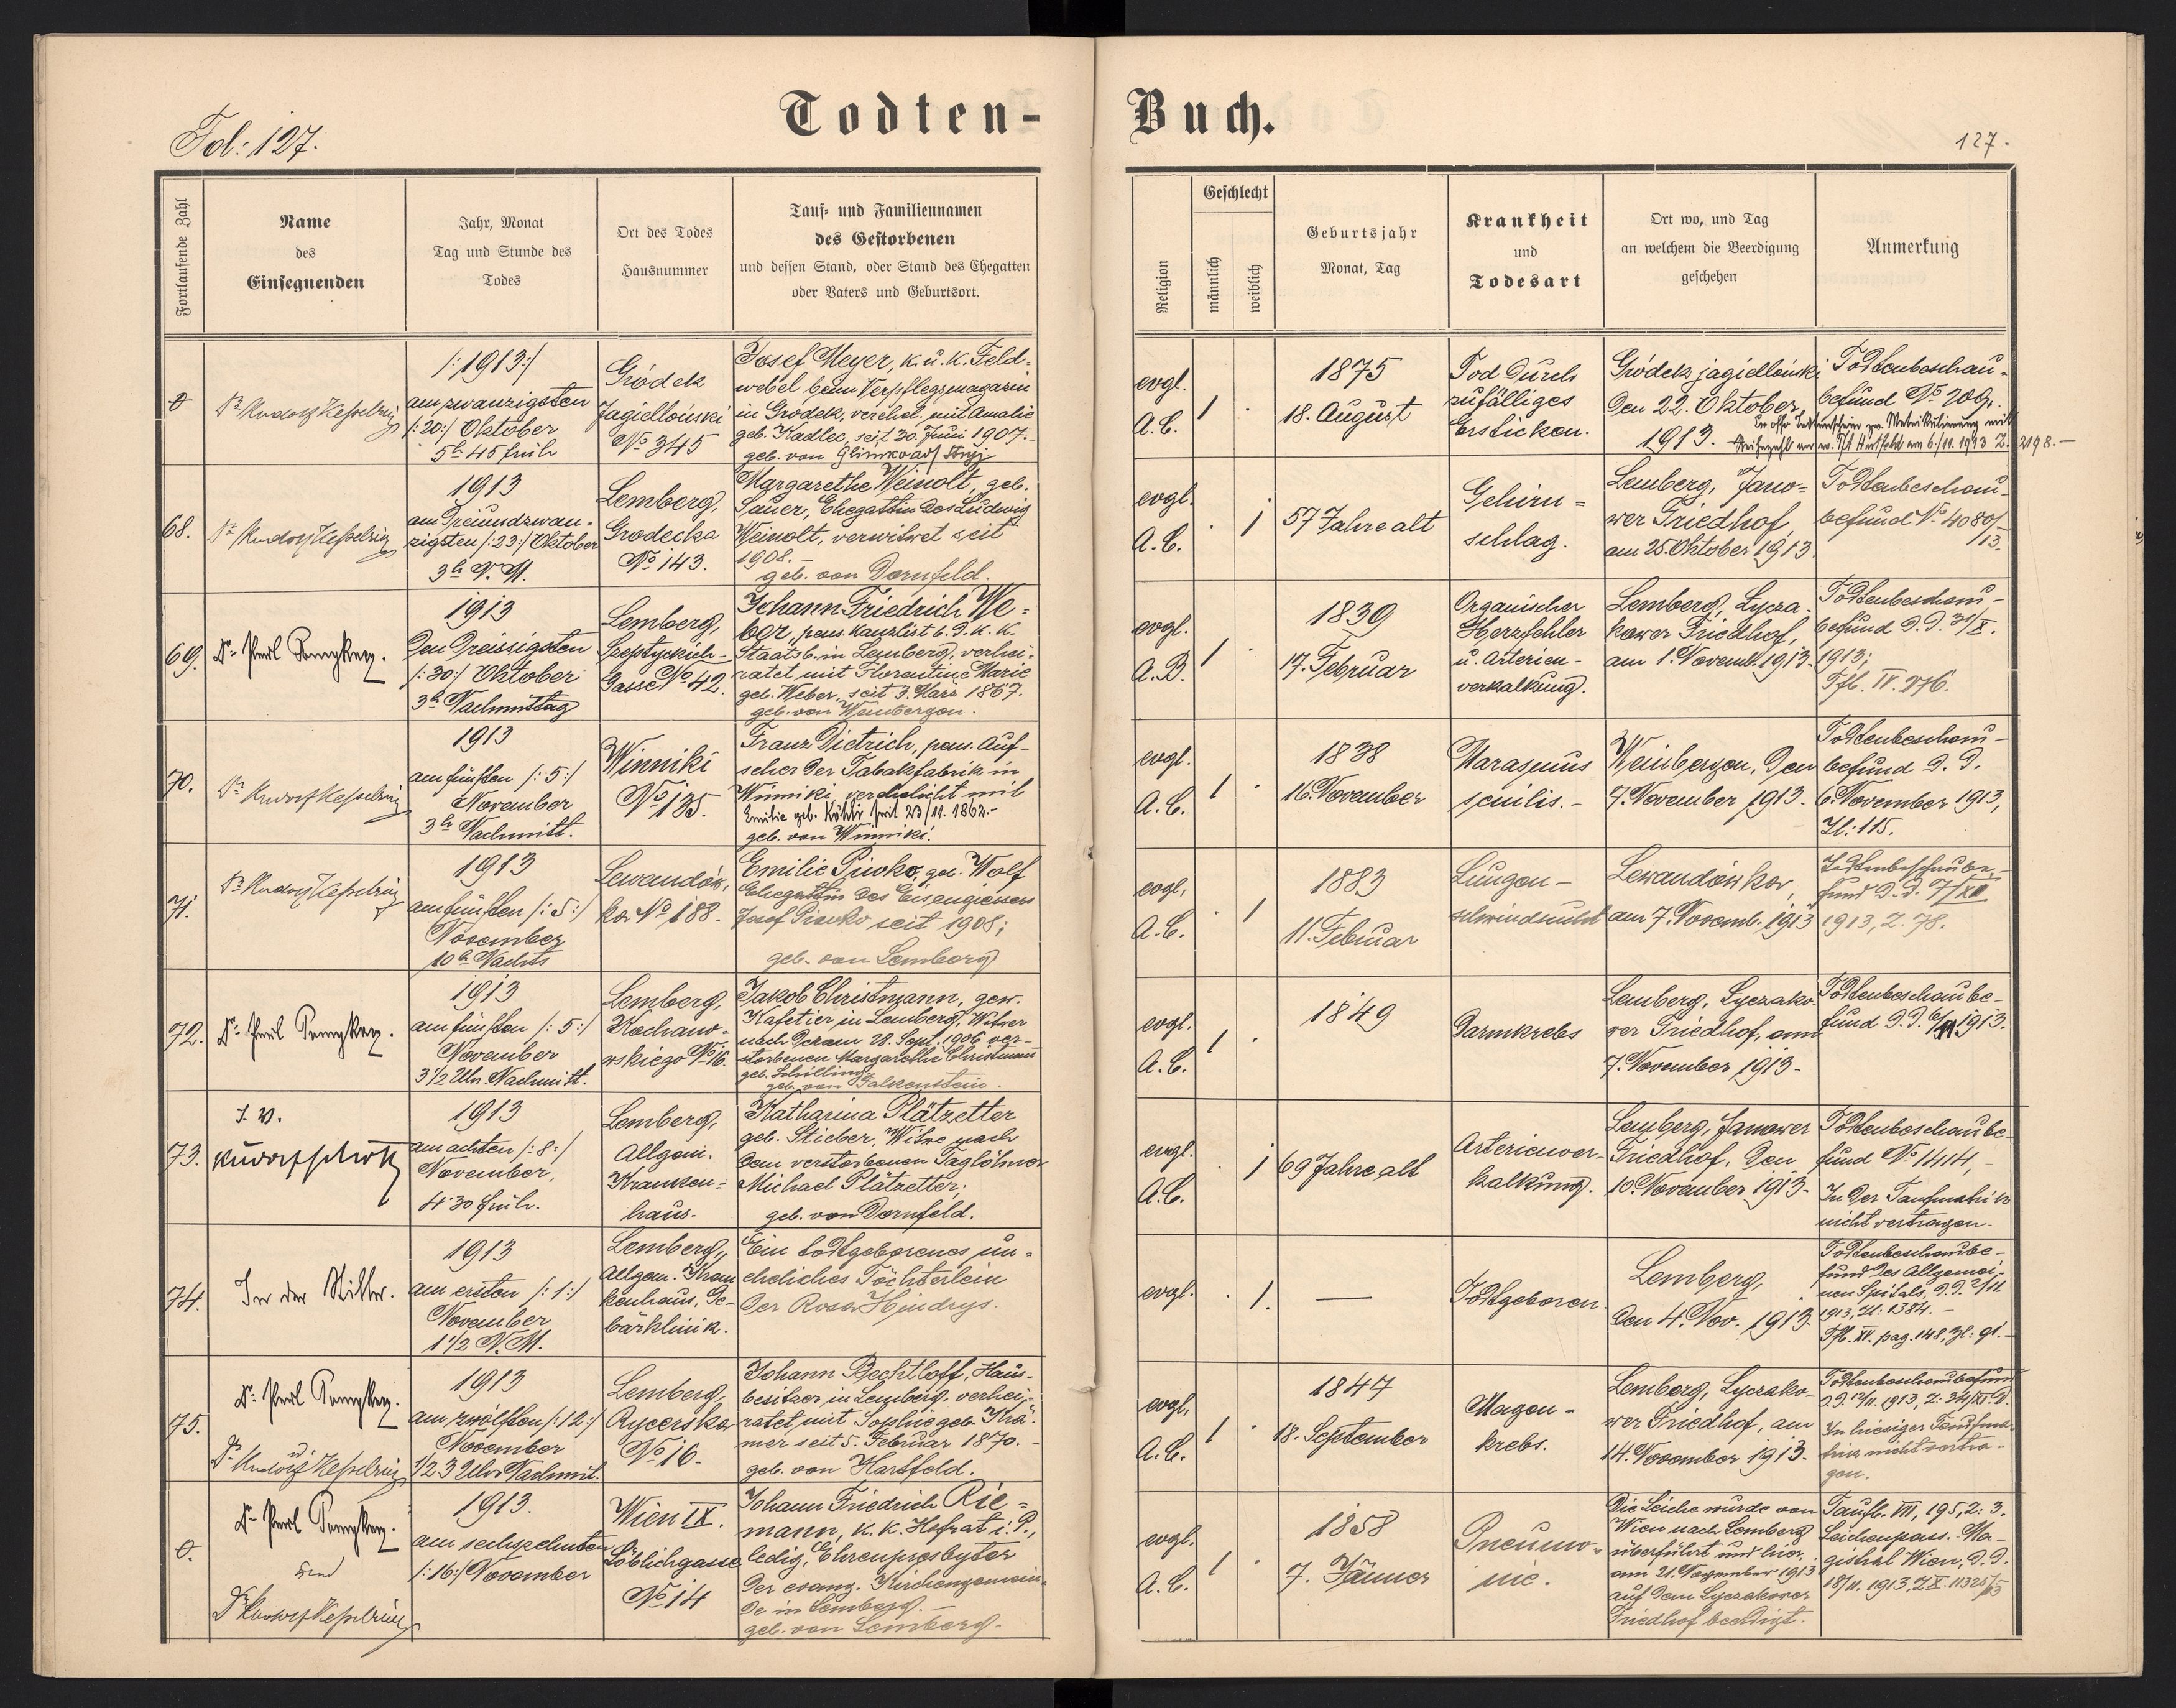 Todten-
Buch.
Fol: 127.
127.
Fortlaufende Zahl
Name
des
Einsegnenden
Jahr, Monat
Tag und Stunde des
Todes
Ort des Todes
Hausnummer
Tauf- und Familiennamen
des Gestorbenen
und dessen Stand, oder Stand des Ehegatten
oder Vaters und Geburtsort.
Religion
Geschlecht
männlich
weiblich
Geburtsjahr
Monat, Tag
Krankheit
und
Todesart
Ort wo, und Tag
an welchem die Beerdigung
geschehen
Anmerkung
0
Dr. Rudolf Kesselring
/:1913:/
am zwanzigsten
/:20:/ Oktober
5h 45 früh
Gródek
Jagielloński
No 345
Josef Meyer, k. u. k. Feld-
webel beim Verpflegsmagazin
in Grodek, verehel. mit Amalie
geb. Kadlec, seit 30. Juni 1907.-
geb. von Glinsko ad Stryj
evgl.
A.C.
1 .
1875
18. August
Tod durch
zufälliges
Ersticken.
Gródek jagielloński
den 22. Oktober
1913.
Todtenbeschau-
befund No 209.
6./11. 1913 Z. 2198.-
68.
Dr. Rudolf Kesselring
1913
am dreiundzwan-
zigsten /:23:/ Oktober
3h N. M.
Lemberg,
Grodecka
No 143.
Margarethe Weinolt, geb.
Sauer, Ehegattin des Ludwig
Weinolt, verwitwet seit
1908.-
geb. von Dornfeld.
evgl.
A.C.
. 1
57 Jahre alt
Gehirn-
schlag.
Lemberg, Jano-
wer Friedhof
am 25. Oktober 1913.
Todtenbeschau-
befund No 4080/
/13.
69.
1913
den dreissigsten
/:30:/ Oktober
3h Nachmittag
Lemberg,
Szeptyckich-
Gasse No 42.
Johann Friedrich We-
ber, pens. Kanzlist b. d. k. k.
Staatsb. in Lemberg, verhei-
ratet mit Florentine Marie
geb. Weber, seit 3. März 1867.
geb. von Weinbergen.
evgl.
A.B.
1 .
1839
17. Februar
Organischer
Herzfehler
u. Arterien-
verkalkung.
Lemberg, Lycza-
kower Friedhof,
am 1. Novemb. 1913.
Todtenbeschau-
befund d. d. 31/X.
1913;
Tfb. IV. 276.
70.
Dr. Rudolf Kesselring
1913
am fünften /:5:/
November
3h Nachmitt.
Winniki
No 135.
Franz Dietrich, pens. Auf-
seher der Tabakfabrik in
Winniki, verehelicht mit
Emilie geb. Köhli seit 23/11. 1862.-
geb. von Winniki.
evgl.
A.C.
1 .
1838
16. November
Marasmus
senilis.-
Weinbergen, den
7. November 1913.
Todtenbeschau-
befund d. d.
6. November 1913,
Zl: 115.
71.
Dr. Rudolf Kesselring
1913
am fünften /:5:/
November
10h Nachts
Lewandów-
ka No 188.
Emilie Piwko, geb. Wolf
Ehegattin des Eisengiessers
Josef Piwko seit 1908;
geb. von Lemberg
evgl.
A.C.
. 1
1883
11. Februar
Lungen-
schwindsucht
Lewandówka,
am 7. Novemb. 1913
Todtenbeschaube-
fund d. d. 7/XI
1913, Z. 78.
72.
1913
am fünften /:5:/
November
3 1/2 Uhr Nachmitt.
Lemberg,
Kochano-
wskiego No 16.
Jakob Christmann, gew.
Kafetier in Lemberg, Witwer
nach der am 28. Sept. 1906 ver-
storbenen Margarethe Christmann
geb. Schilling
geb. von Falkenstein.
evgl.
A.C.
1 .
1849
Darmkrebs
Lemberg, Lyczako-
wer Friedhof, am
7. November 1913.-
Todtenbeschaube-
fund d. d. 6/11. 1913.
73.
I. V.
Rudolf Schott
1913
am achten /:8:/
November,
4.30 früh.
Lemberg,
Allgem.
Kranken-
haus.
Katharina Plätzetter
geb. Stieber, Witwe nach
dem verstorbenen Taglöhner
Michael Plätzetter.
geb. von Dornfeld.
evgl.
A.C.
. 1
69 Jahre alt
Arterienver-
kalkung.
Lemberg, Janower
Friedhof, den
10. November 1913.-
Todtenbeschaube-
fund No 1414,-
In der Taufmatrik
nicht vertragen.
74.
In der Stille.
1913
am ersten /:1:/
November
1 1/2 N. M.
Lemberg,
Allgem. Kran
kenhaus, Ge-
bärklinik.
Ein todtgeborenes un-
eheliches Töchterlein
der Rosa Hindrys.
evgl.
. 1.
—
Todtgeboren.
Lemberg,
den 4. Nov. 1913.
Todtenbeschaube-
fund des Allgemei-
nen Spitals, d. d. 2/11.
1913, Zl: 1384.-
Tfb. XV. pag. 148, Zl: 91.-
75.
u.
Dr. Rudolf Kesselring
1913
am zwölften /:12:/
November
1/2 3 Uhr Nachmit.
Lemberg,
Rycerska
No 16.
Johann Bechtloff, Haus-
besitzer in Lemberg, verhei-
ratet mit Sophie geb. Krä-
mer seit 5. Februar 1870.-
geb. von Hartfeld.
evgl.
A.C.
1 .
1847
18. September
Magen-
krebs.
Lemberg, Lyczako-
wer Friedhof, am
14. November 1913.
Todtenbeschaubefund
In hiesiger Taufma-
trik nicht vertra-
gen.
0.
und
Dr. Rudolf Kesselring
1913.
am sechzehnten
/:16:/ November
Wien IX.
Löblichgasse
No 14
Johann Friedrich Rie-
mann, k. k. Hofrat i. P.,
ledig, Ehrenpresbyter
der evang. Kirchengemein-
de in Lemberg.-
geb. von Lemberg.-
evgl.
A.C.
1 .
1858
7. Jänner
Pneumo-
nie.
Die Leiche wurde von
Wien nach Lemberg
überführt und hier
am 21. November 1913
auf dem Lyczakower
Friedhof beerdigt.
Taufb. VII, 195, Z: 3.
Leichenpass. Ma-
gistrat Wien, d. d.
18/11. 1913, Z X. 11325/